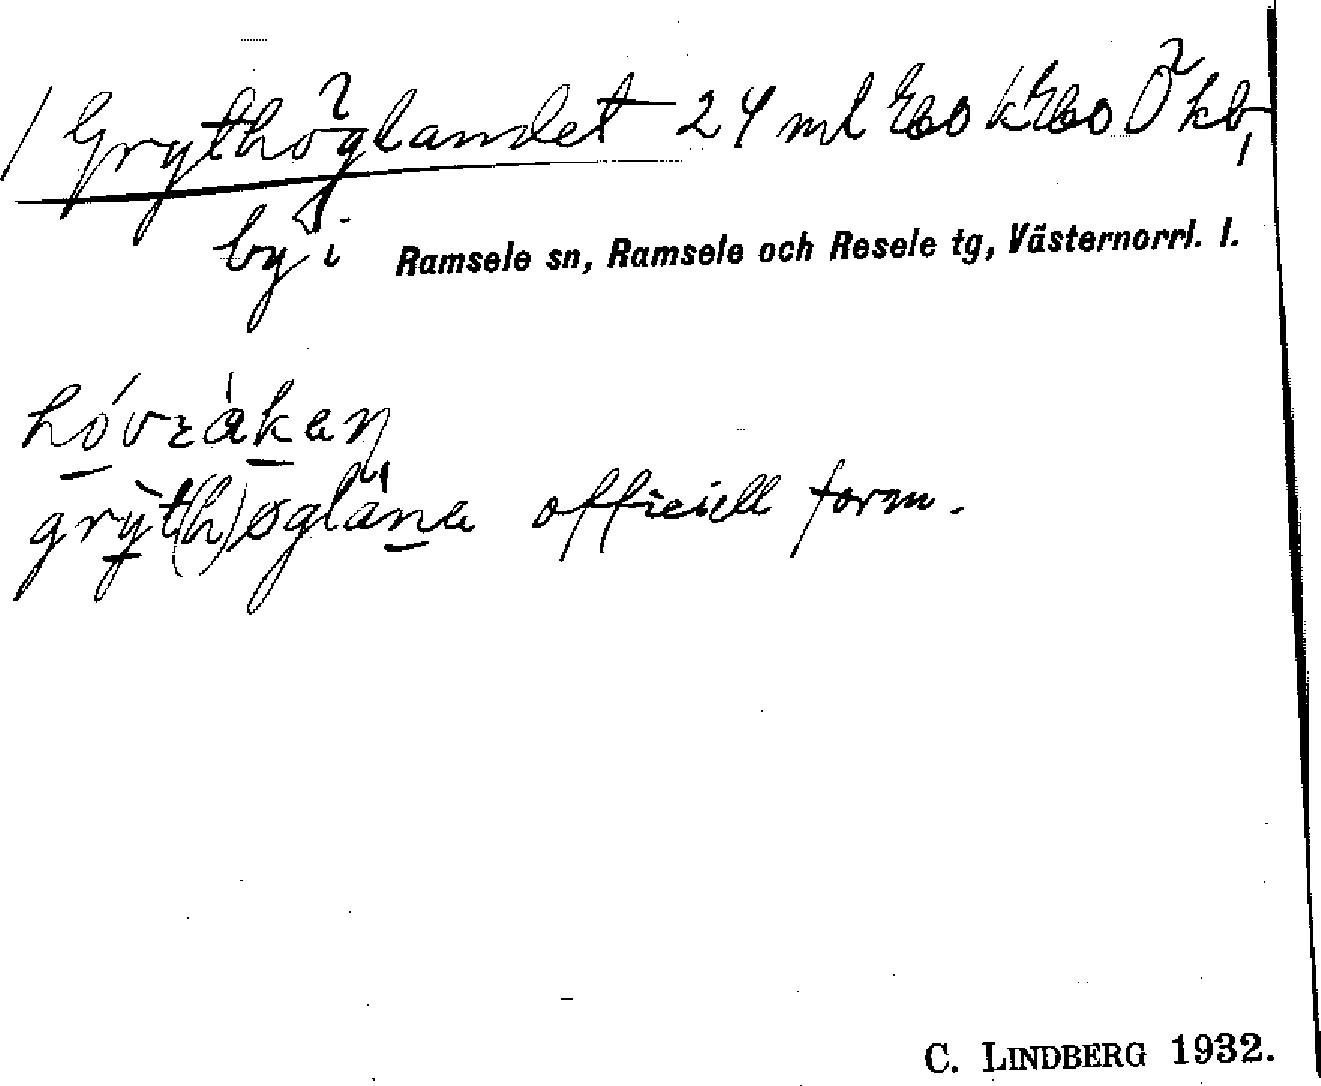 / Grythöglandet 24 ml Ö kb,
by i Ramsele sn, Ramsele och Resele tg, Västernorrl. l.
gryt(h)øglàna officiell form.
C. LINDBERG 1932.